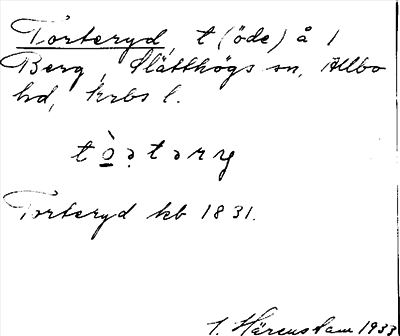 Torteryd, t (öde) å 1
Berg, Slätthögs sn, Allbo
hd, Krbs l.
Torteryd kb 1831.
J. Härenstam 1933